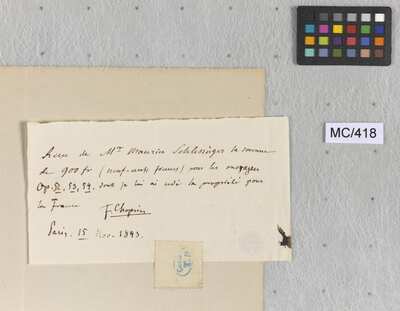 Reçu de Mr. Maurice Schlesinger la somme
de 900 fr (neuf-cents francs) pour les ouvrages
Op. 52, 53, 54, dont je lui ai cédé la propriété pour
la France
F. Chopin
Paris. 15 Nov. 1843.
MC/418